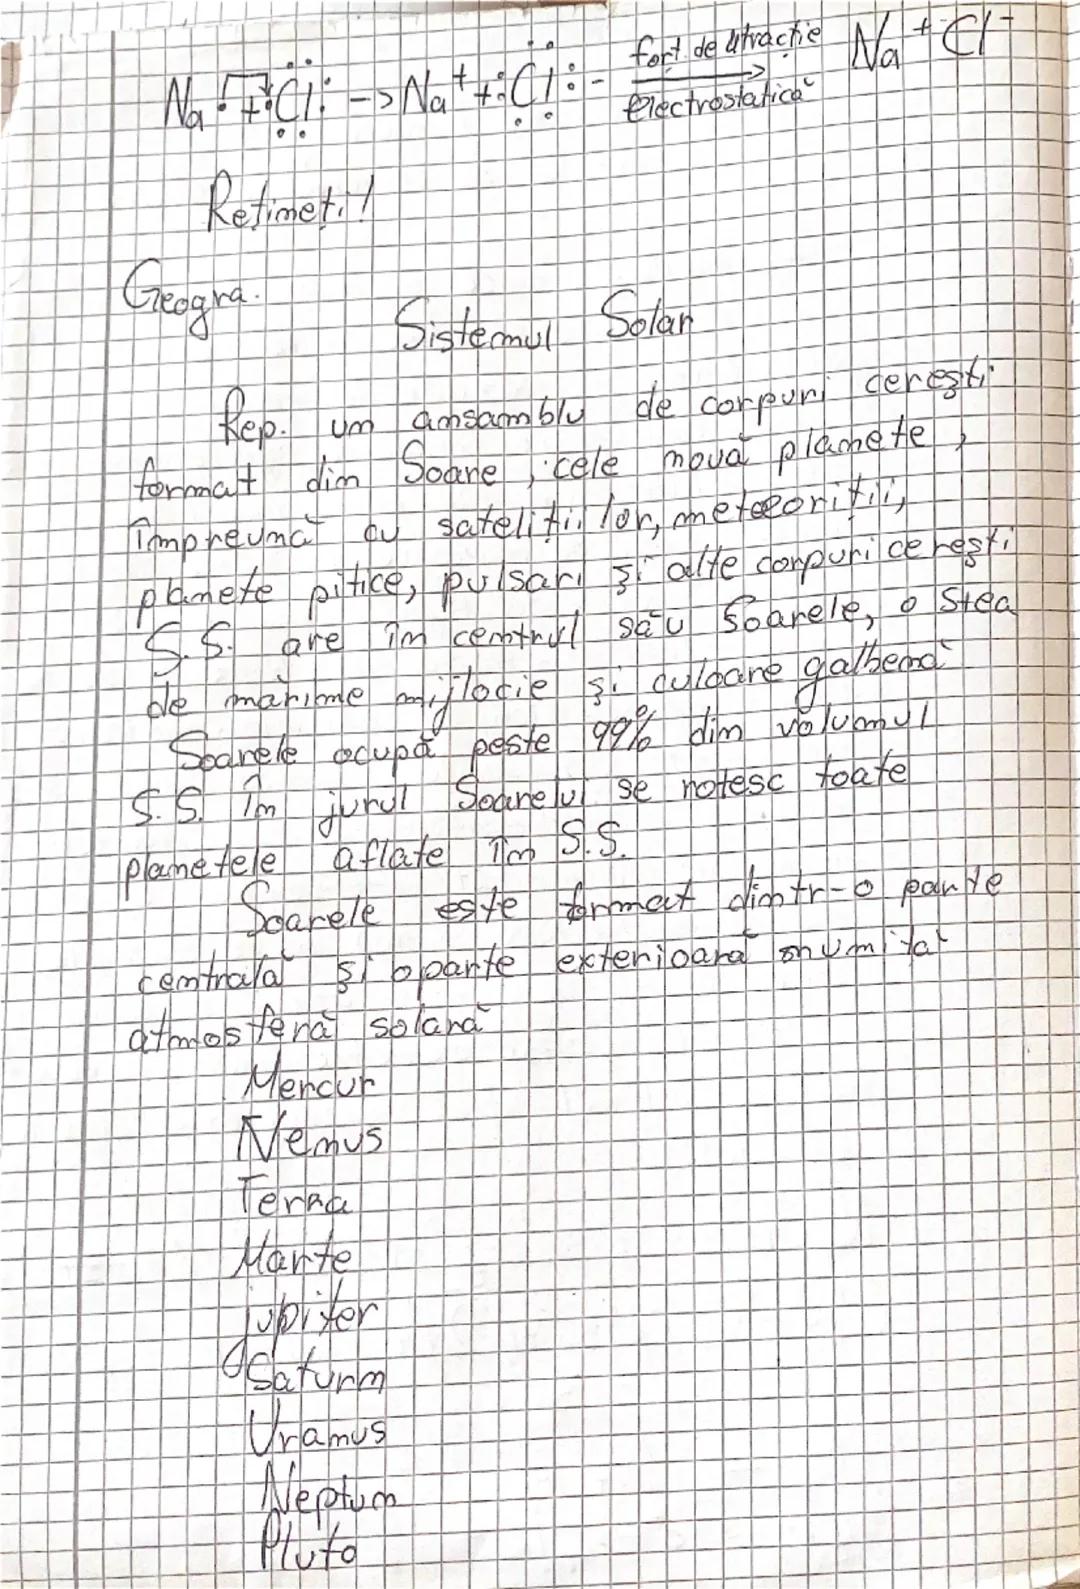 Na· + :Cl: -> Na⁺ + :Cl:⁻ forț. de atracție Na⁺Cl⁻
electrostatică
Rețineți!
Geogra.
Sistemul Solar
Rep. un ansamblu de corpuri cerești
format din Soare, cele nouă planete,
împreună cu sateliții lor, meteoriții,
planete pitice, pulsari și alte corpuri cerești
S.S. are în centrul său Soarele, o stea
de mărime mijlocie și culoare galbenă
Soarele ocupă peste 99% din volumul
S.S. În jurul Soarelui se rotesc toate
planetele aflate în S.S.
Soarele este format dintr-o parte
centrală și o parte exterioară numită
atmosferă solară
Mercur
Venus
Terra
Marte
jupiter
Saturn
Uranus
Neptun
Pluto